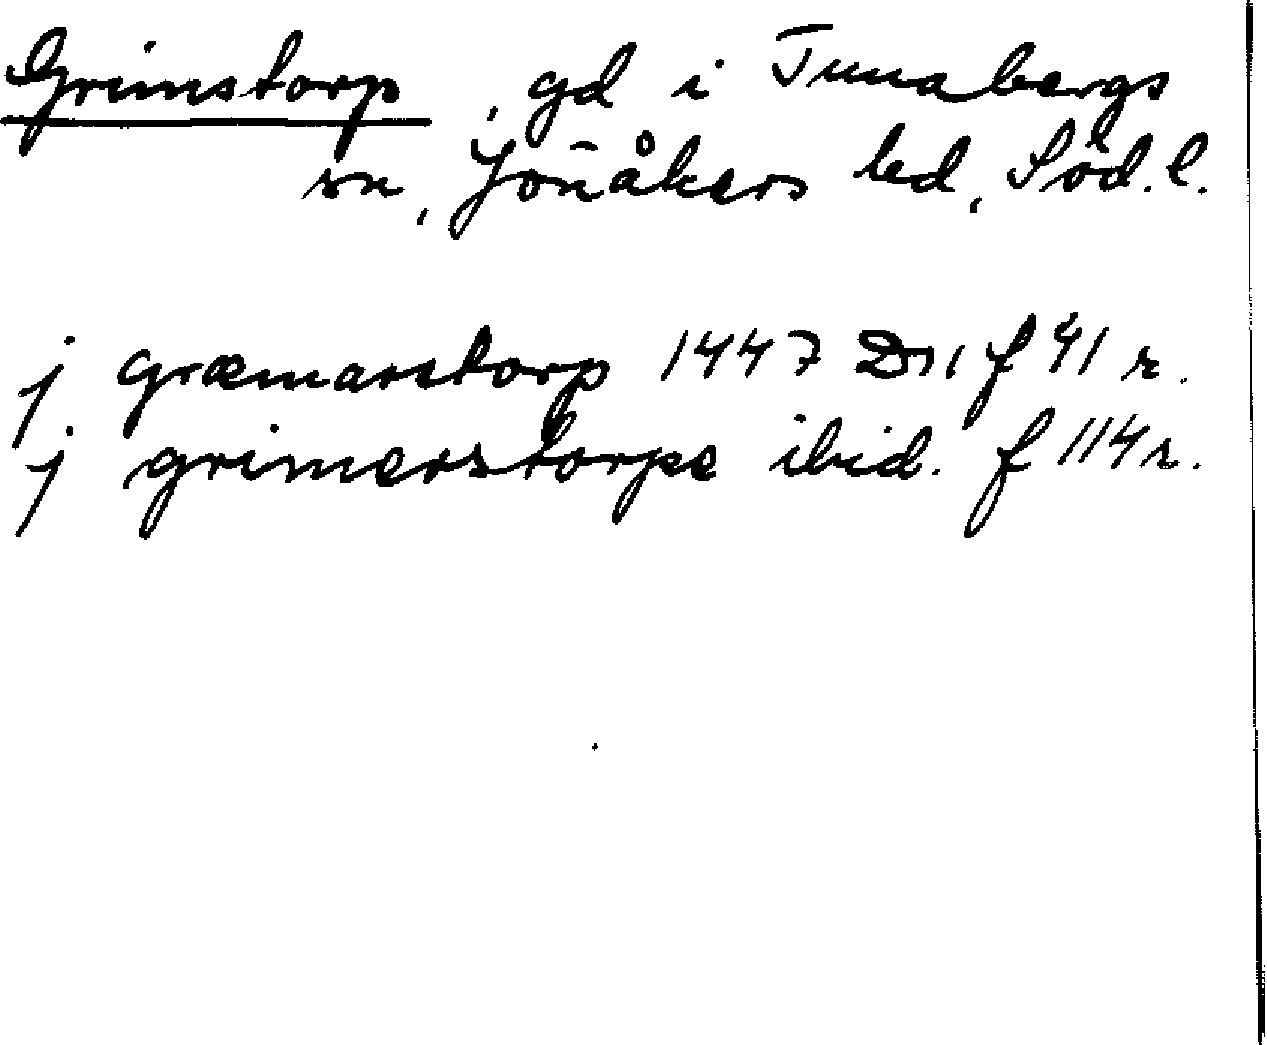 Grimstorp, gd i Tunabergs
sn, Jönåkers hd, Söd. l.
j græmarstorp 1447 D11 f 41 r.
j grimerstorpe ibid. f 114 r.